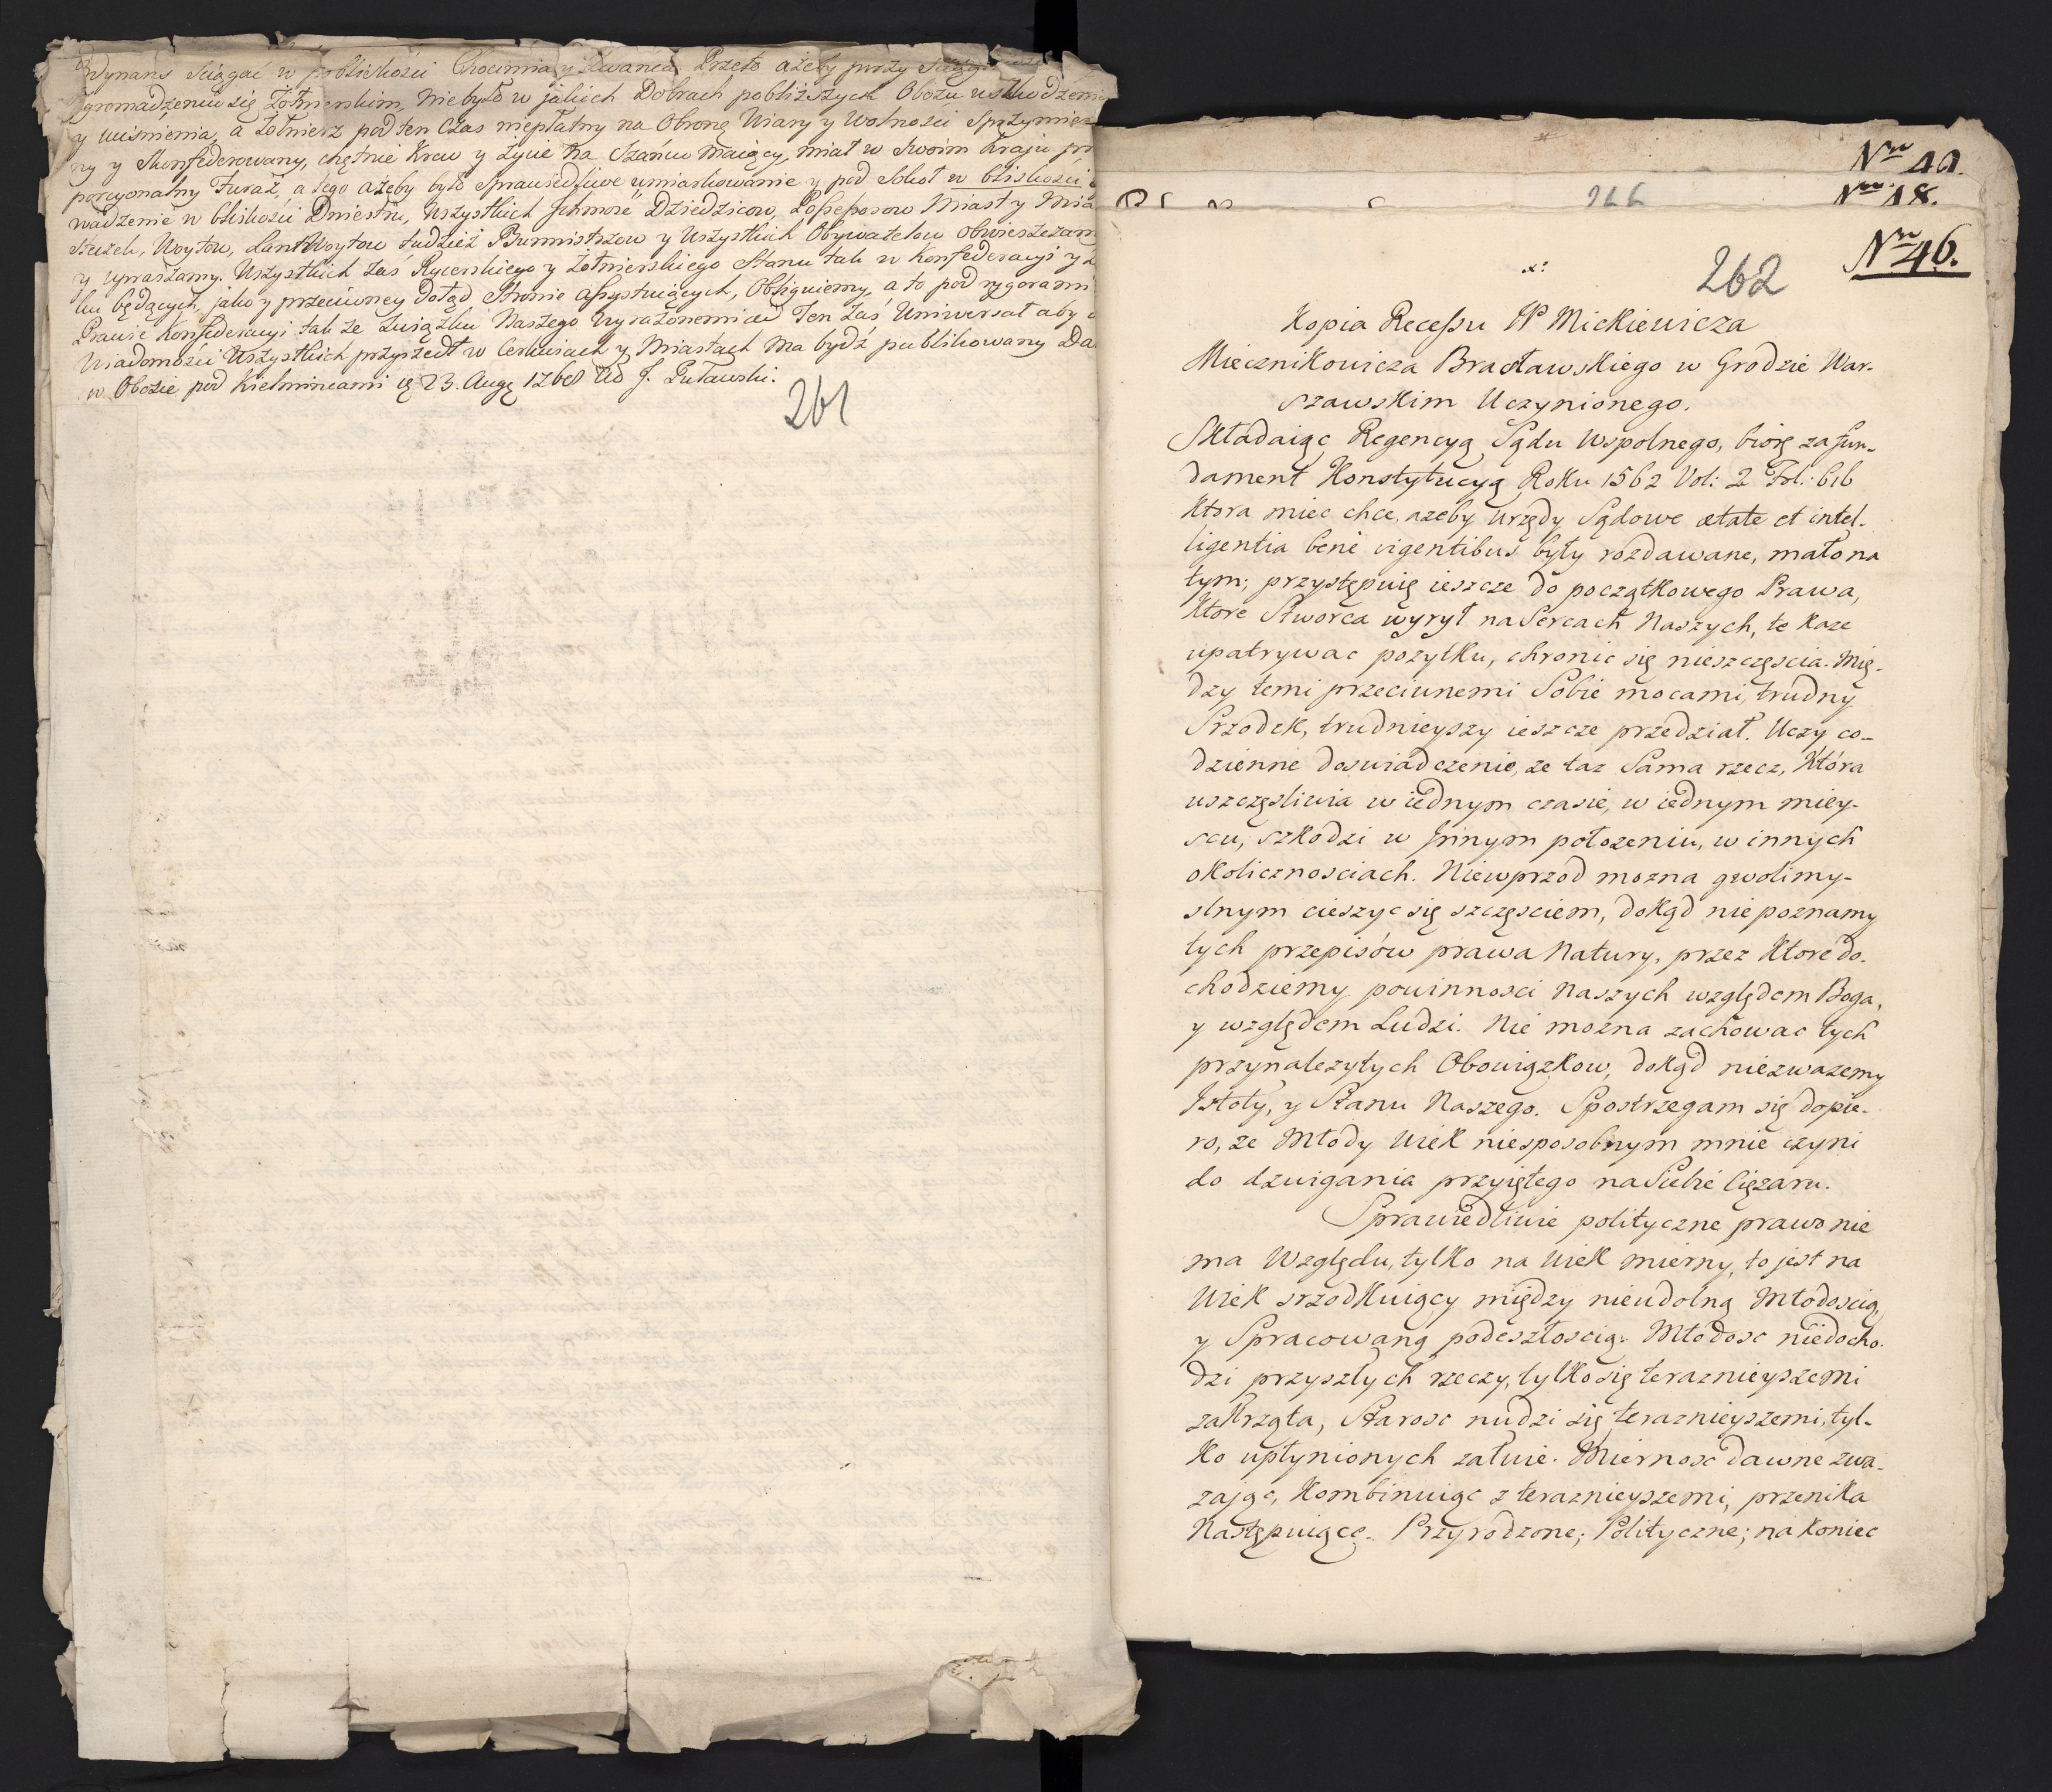 Ordynans sciągać w pobliskości Chocimia y Żwańca. Przeto ażeby przy
zgromadzeniu się Żołnierskim, niebyło w jakich Dobrach pobliższych Obozu uszkodzenia
y uciśnienia, a Żołnierz pod ten Czas niepłatny na Obronę Wiary y Wolności Sprzymierzo
ny y Skonfederowany, chętnie Krew y Życie na Szańcu maiący, miał w swoim Kraju pro
porcyonalny Furaż, a tego ażeby było sprawiedliwe umiarkowanie y pod Sokoł w bliskości
wadzenie w bliskości Dniestru, Wszystkich Ichmość Dziedzicow, Possessorow Miast y Mia
steczek, Woytow, LantWoytow tudzież Burmistrzow y Wszystkich Obywatelow obwieszczamy
y upraszamy. Wszystkich zaś Rycerskiego y Żołnierskiego Stanu tak w Konfederacyi y
ku będących, jako y przeciwney dotąd stronie assystuiących, Obliguiemy, a to pod rygorami
Prawie Konfederacyi tak ze Związku Naszego wyrażonemi Ten zaś Uniwersał aby
Wiadomości Wszystkich przyszedł w Cerkwiach y Miastach ma bydź publikowany Da
w Obozie pod Kielmincami 23. Aug 1768 J. Puławski.
261
Nro 40.
Nro 18.
266
Nro 46.
262
Kopia Recessu JP Mickiewicza
Miecznikowicza Bracławskiego w Grodzie War-
szawskim Uczynionego.
Składaiąc Regencyą Sądu wspolnego, biorę za fun-
dament Konstytucyą Roku 1562 Vol: 2 Fol: 616
Ktora miec chce, azeby urzędy Sądowe ætate et intel-
ligentia bene vigentibus były rozdawane, mało na
tym; przystępuię ieszcze do początkowego Prawa,
Ktore Stworca wyrył na Sercach Naszych, te Kaze
upatrywac pozytku, chronic się nieszczęscia. Mię-
dzy temi przeciwnemi Sobie mocami, trudny
Srzodek, trudnieyszy ieszcze przedział. Uczy co-
dzienne doswiadczenie, ze taz Sama rzecz, Która
uszczęsliwia w iednym czasie, w iednym miey-
scu, szkodzi w Innym położeniu, w innych
okolicznosciach. Niewprzod mozna gwolimy-
slnym cieszyc się szczęsciem, dokąd nie poznamy
tych przepisów prawa Natury, przez Ktore do-
chodziemy powinnosci Naszych względem Boga,
y względem Ludzi. Nie mozna zachowac tych
przynalezytych Obowiązkow, dokąd niezwazemy
Istoty, y Stanu Naszego. Spostrzegam się dopie-
ro, ze Młody Wiek niesposobnym mnie czyni
do dzwigania przyiętego na Siebie Cięzaru.
Sprawiedliwie polityczne prawo nie
ma Względu, tylko na Wiek mierny, to jest na
Wiek srzodkuiący między nieudolną Młodoscią,
y Spracowaną podeszłoscią. Młodosc niedocho-
dzi przyszłych rzeczy, tylko się teraznieyszemi
zakrząta, Starosc nudzi się teraznieyszemi, tyl-
ko upłynionych załuie. Miernosc dawne zwa-
zając, Kombinuiąc z teraznieyszemi, przenika
Następuiące. Przyrodzone; Polityczne; na Koniec